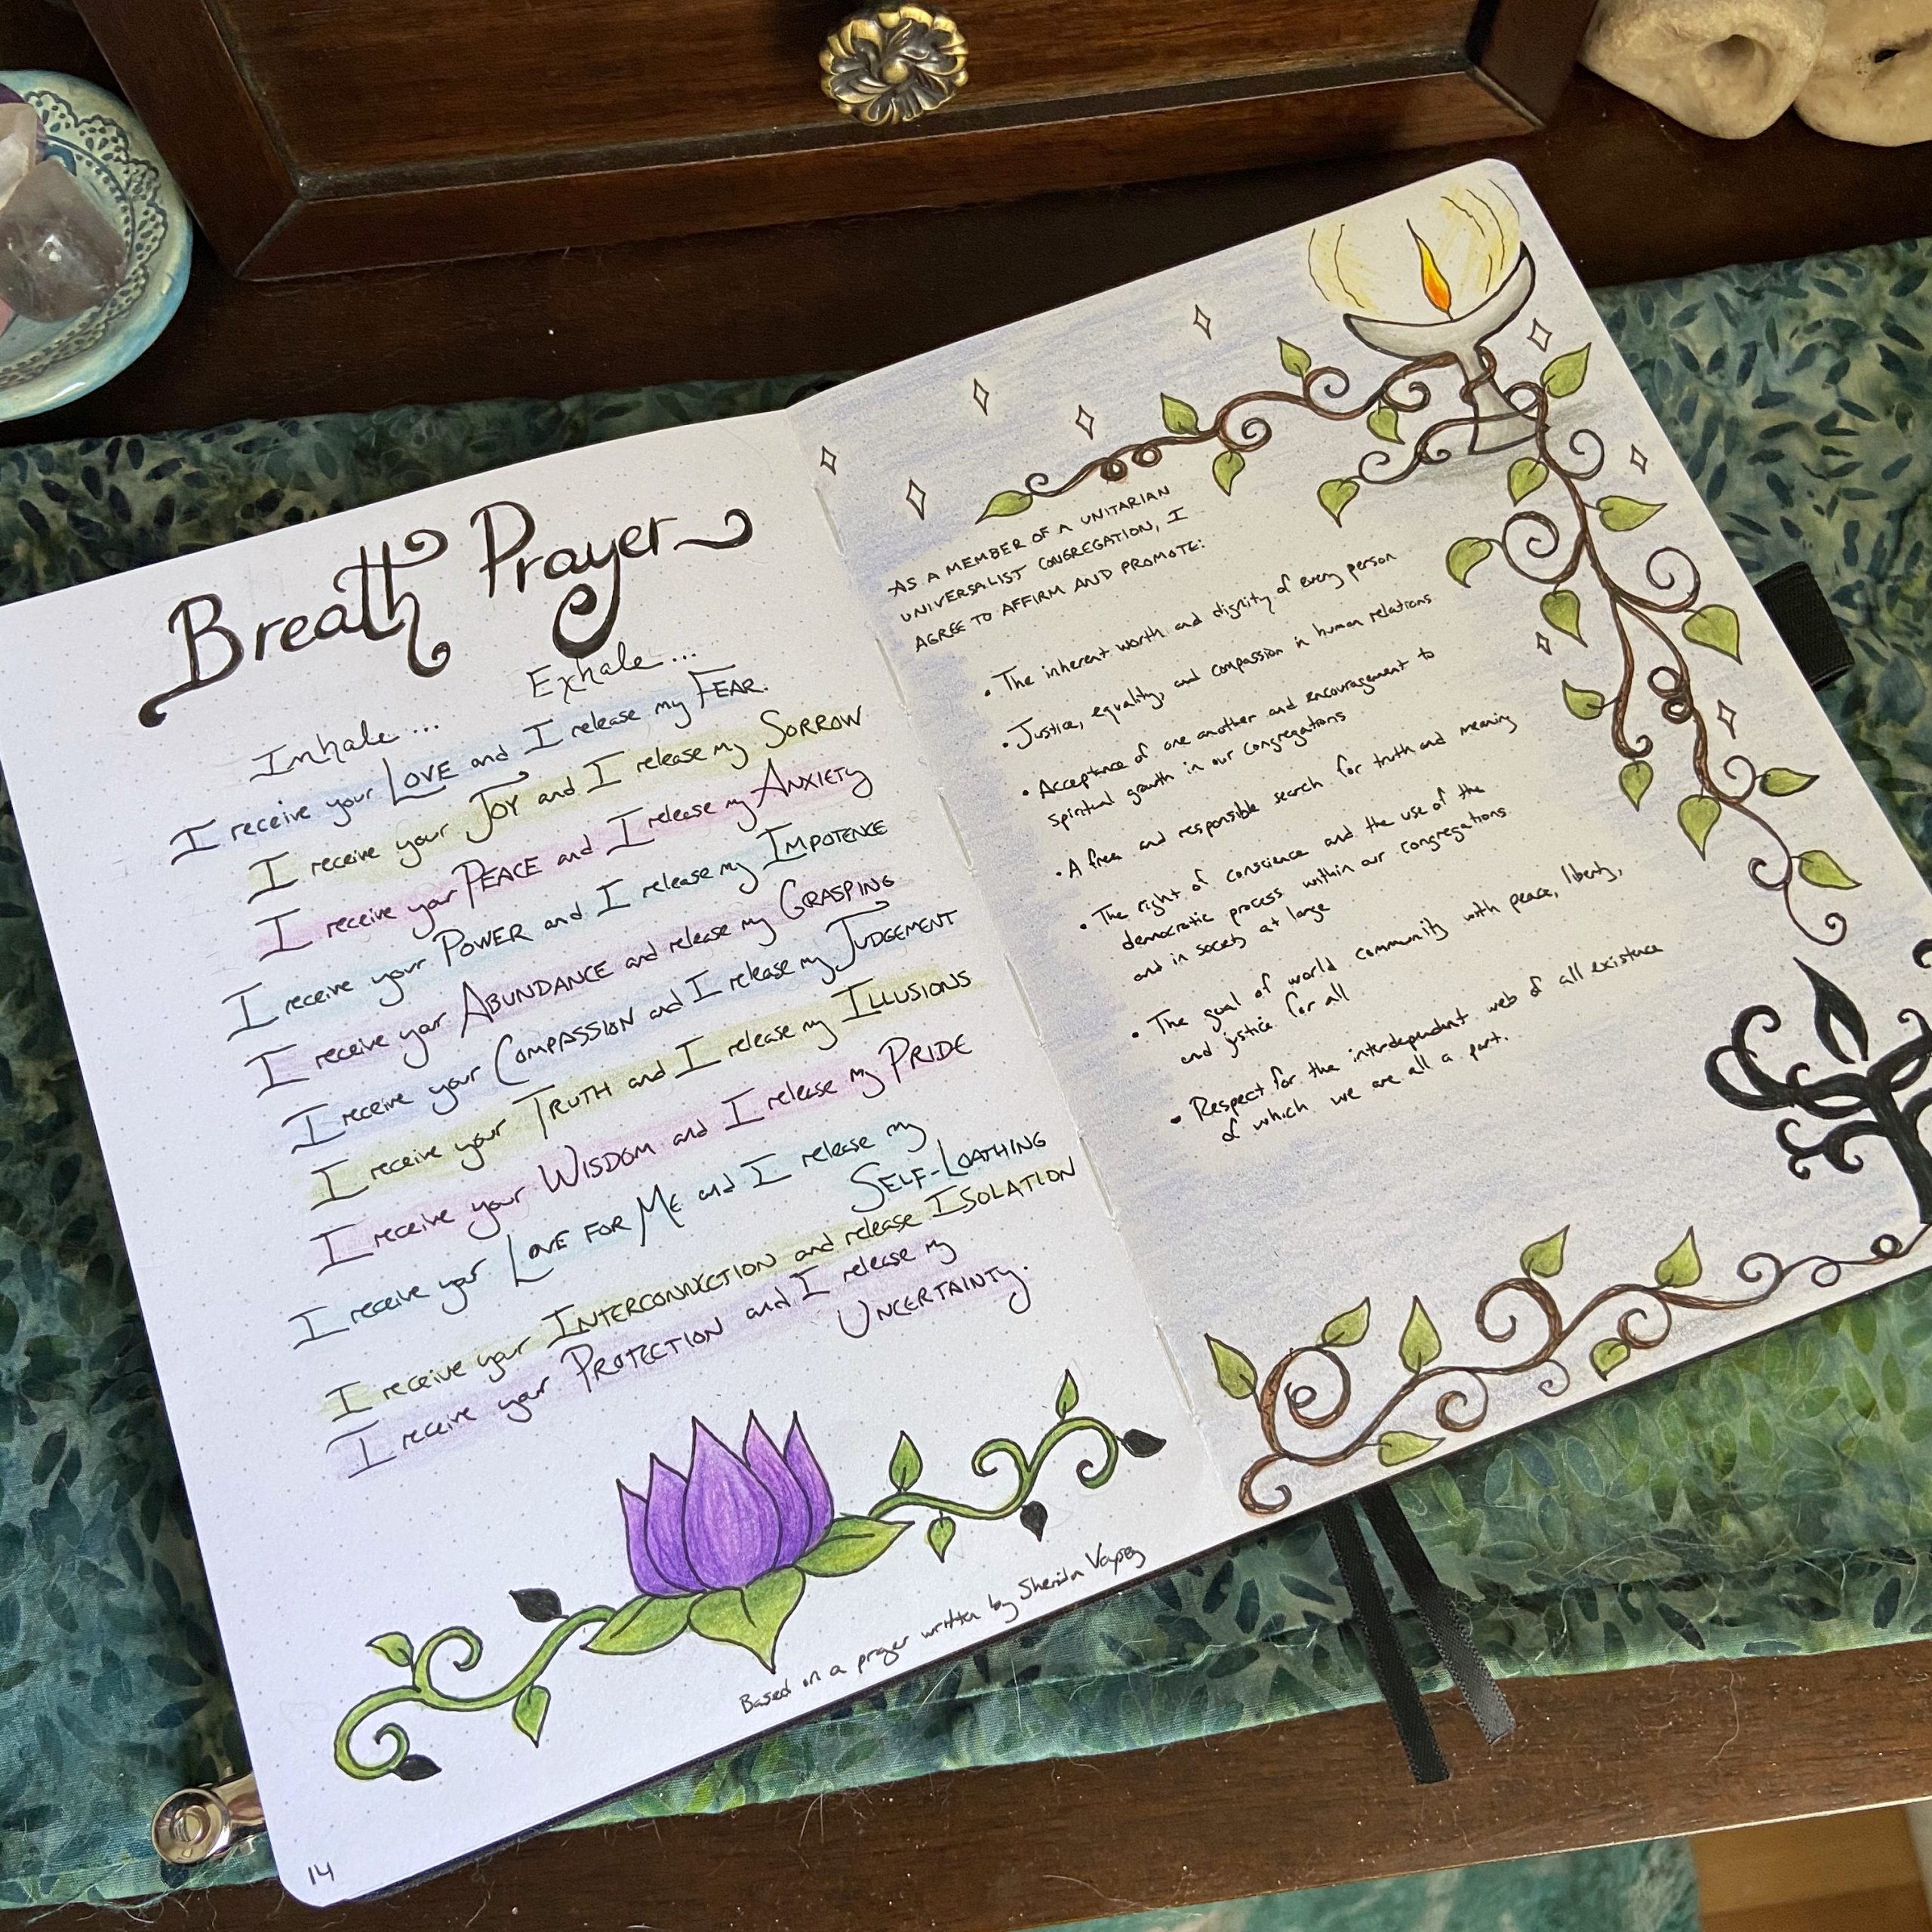 Breath Prayer
Inhale... Exhale...
I receive your LOVE and I release my FEAR.
I receive your JOY and I release my SORROW
I receive your PEACE and I release my ANXIETY
I receive your POWER and I release my IMPOTENCE
I receive your ABUNDANCE and release my GRASPING
I receive your COMPASSION and I release my JUDGEMENT
I receive your TRUTH and I release my ILLUSIONS
I receive your WISDOM and I release my PRIDE
I receive your LOVE FOR ME and I release my
SELF-LOATHING
I receive your INTERCONNECTION and release ISOLATION
I receive your PROTECTION and I release my
UNCERTAINTY.
Based on a prayer written by
14
AS A MEMBER OF A UNITARIAN
UNIVERSALIST CONGREGATION, I
AGREE TO AFFIRM AND PROMOTE:
• The inherent worth and dignity of every person
• Justice, equality, and compassion in human relations
• Acceptance of one another and encouragement to
spiritual growth in our congregations
• A free and responsible search for truth and meaning
• The right of conscience and the use of the
democratic process within our congregations
and in society at large
• The goal of world community with peace, liberty,
and justice for all
• Respect for the interdependent web of all existence
of which we are all a part.